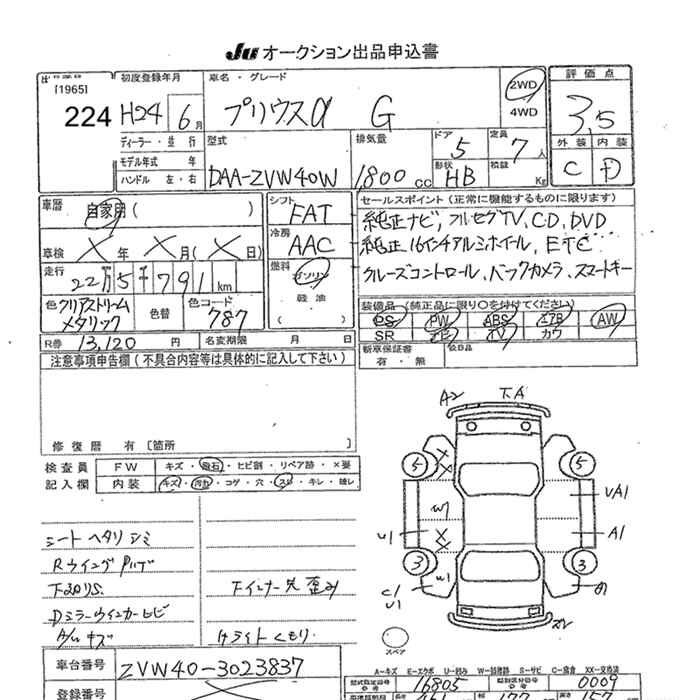 Ju オークション出品申込書
[1965]
224
初度登録年月
H24 6月
車名・グレード
プリウスα G
2WD
4WD
評価点
3.5
外装 内装
C D
ディーラー・並行
モデル年式 年
ハンドル 左・右
型式
DAA-ZVW40W
排気量
1,800 cc
ドア
5
形状
HB
定員
7人
積載
Kg
車歴
自家用( )
車検 × 年 × 月(× 日)
走行
22万5千791 km
色 クリアストリームメタリック
色替
色コード
787
シフト
FAT
冷房
AAC
燃料
ガソリン
軽油
( )
セールスポイント(正常に機能するものに限ります)
純正ナビ、フルセグTV、CD、DVD
純正16インチアルミホイール、ETC
クルーズコントロール、バックカメラ、スマートキー
装備品(純正品に限り○を付けてください)
PS PW ABS エアB AW
SR ナビ TV カワ
R券 13,120 円
名変期限 月 日
新車保証書
有・無
後日品
注意事項申告欄(不具合内容等は具体的に記入して下さい)
修復歴 有 [箇所 ]
検査員
記入欄
FW キズ・飛石・ヒビ割・リペア跡・×要
内装 キズ・汚れ・コゲ・穴・スレ・キレ・破レ
シートヘタリ シミ
下廻りS.
Dミラーウインカーヒビ
下インナー欠 歪み
Hライトくもり
A2
T.A
5
5
UA1
A1
3
3
U1
C1
U1
W1
W1
スペア
A-キズ E-エクボ U-凹み W-補修跡 S-サビ C-腐食 XX-交換済
車台番号
ZVW40-3023837
登録番号
型式指定番号
16805
類別区分番号
0009